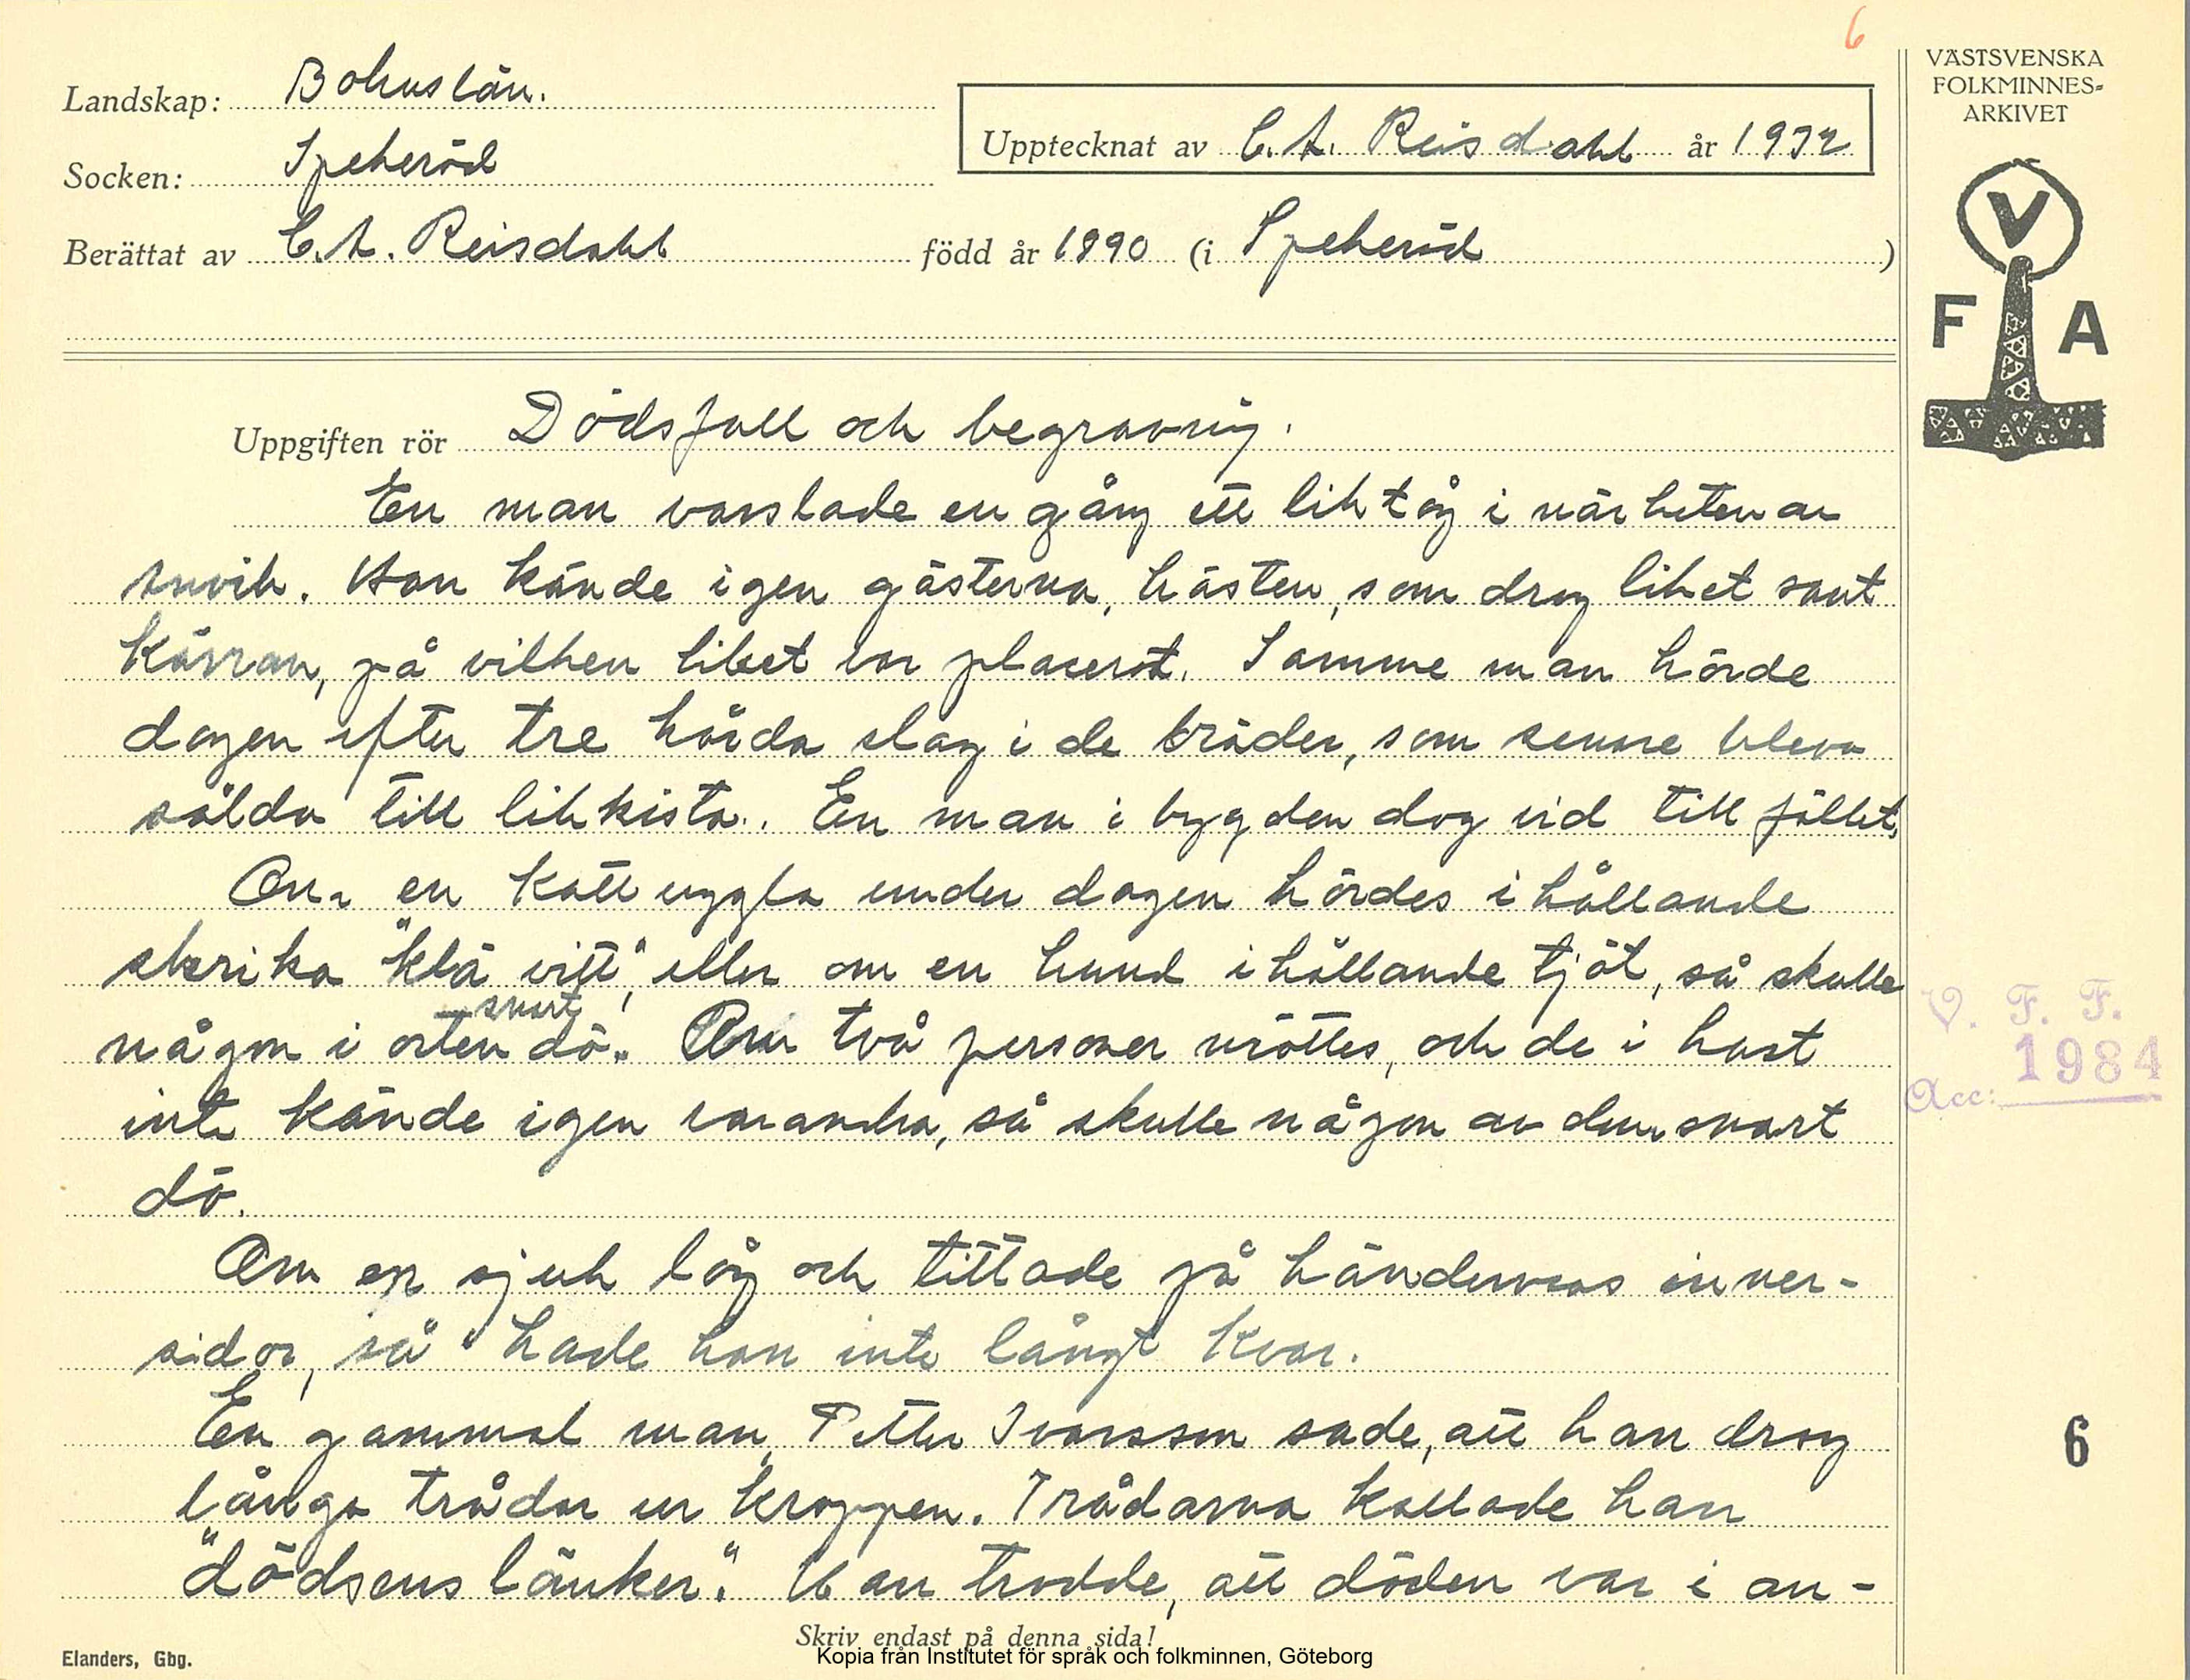 6
VÄSTSVENSKA
FOLKMINNES-
ARKIVET
Landskap: Bohuslän.
Upptecknat av C.A. Reisdahl år 1932
Socken: Spekeröd
Berättat av C.A. Reisdahl född år 1890 (i Spekeröd)
V
F A
Uppgiften rör Dödsfall och begravning.
En man varslade en gång ett liktåg i närheten av
Anvik. Han kände igen gästerna, hästen, som drog liket samt
kärran, på vilken liket var placerat. Samme man hörde
dagen efter tre hårda slag i de bräder, som senare bleva
sålda till likkista. En man i bygden dog vid tillfället.
Om en kattuggla under dagen hördes ihållande
skrika "klä vitt", eller om en hund ihållande tjöt, så skulle
snart
någon i orten dö. Om två personer möttes, och de i hast
inte kände igen varandra, så skulle någon av dem snart
dö.
Om en sjuk låg och tittade på händernas inner-
sidor, så hade han inte långt kvar.
En gammal man, Petter Ivarsson sade, att han drog
långa trådar ur kroppen. Trådarna kallade han
"dödsens länker". Han trodde, att döden var i an-
V. F. F.
1984
Acc:
6
Skriv endast på denna sida!
Elanders, Gbg.
Kopia från Institutet för språk och folkminnen, Göteborg